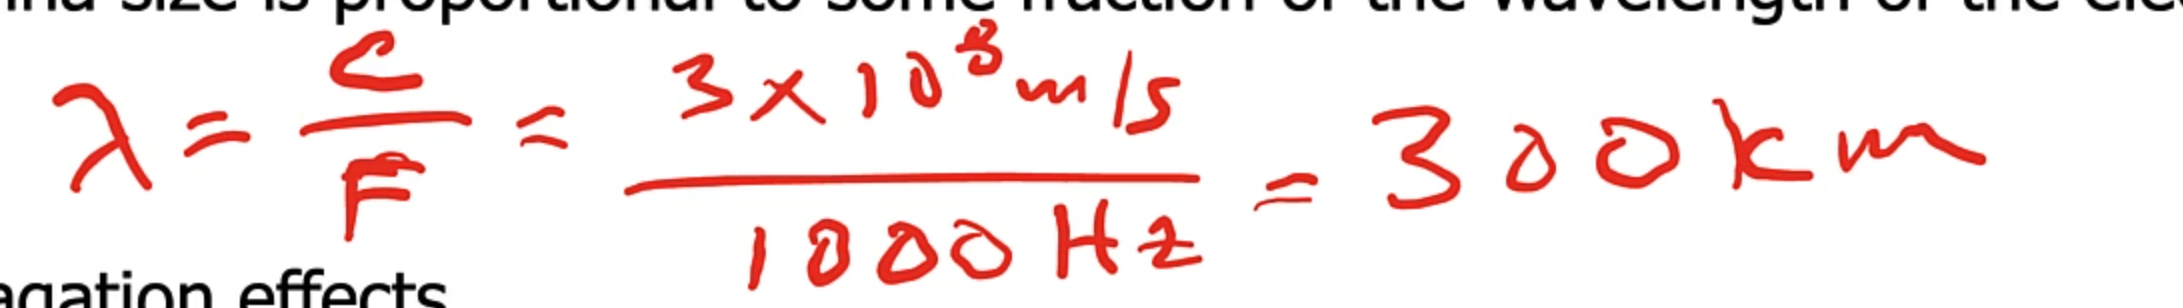 size is proportional to some fraction of the wavelength of the
λ = C/F = 3 x 10⁸ m/s / 1000 Hz = 300 km
effects